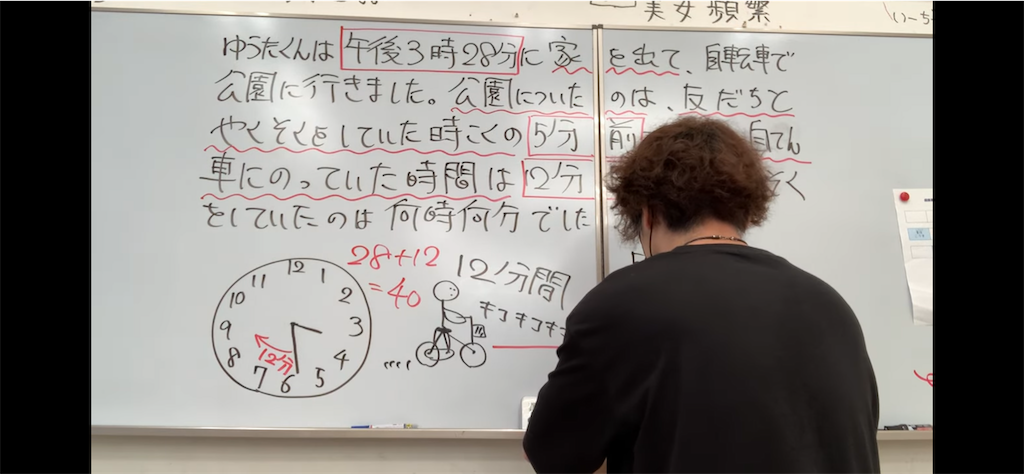 実 安 頻 繁
いーち
ゆうたくんは 午後3時28分に 家を出て、自転車で
公園に行きました。公園についたのは、友だちと
やくそくをしていた時こくの 5分前 自てん
車にのっていた時間は 12分 く
をしていたのは 何時何分でした
28+12
=40
12分間
キコキコキ
12 1 2 3 4 5 6 7 8 9 10 11
12分